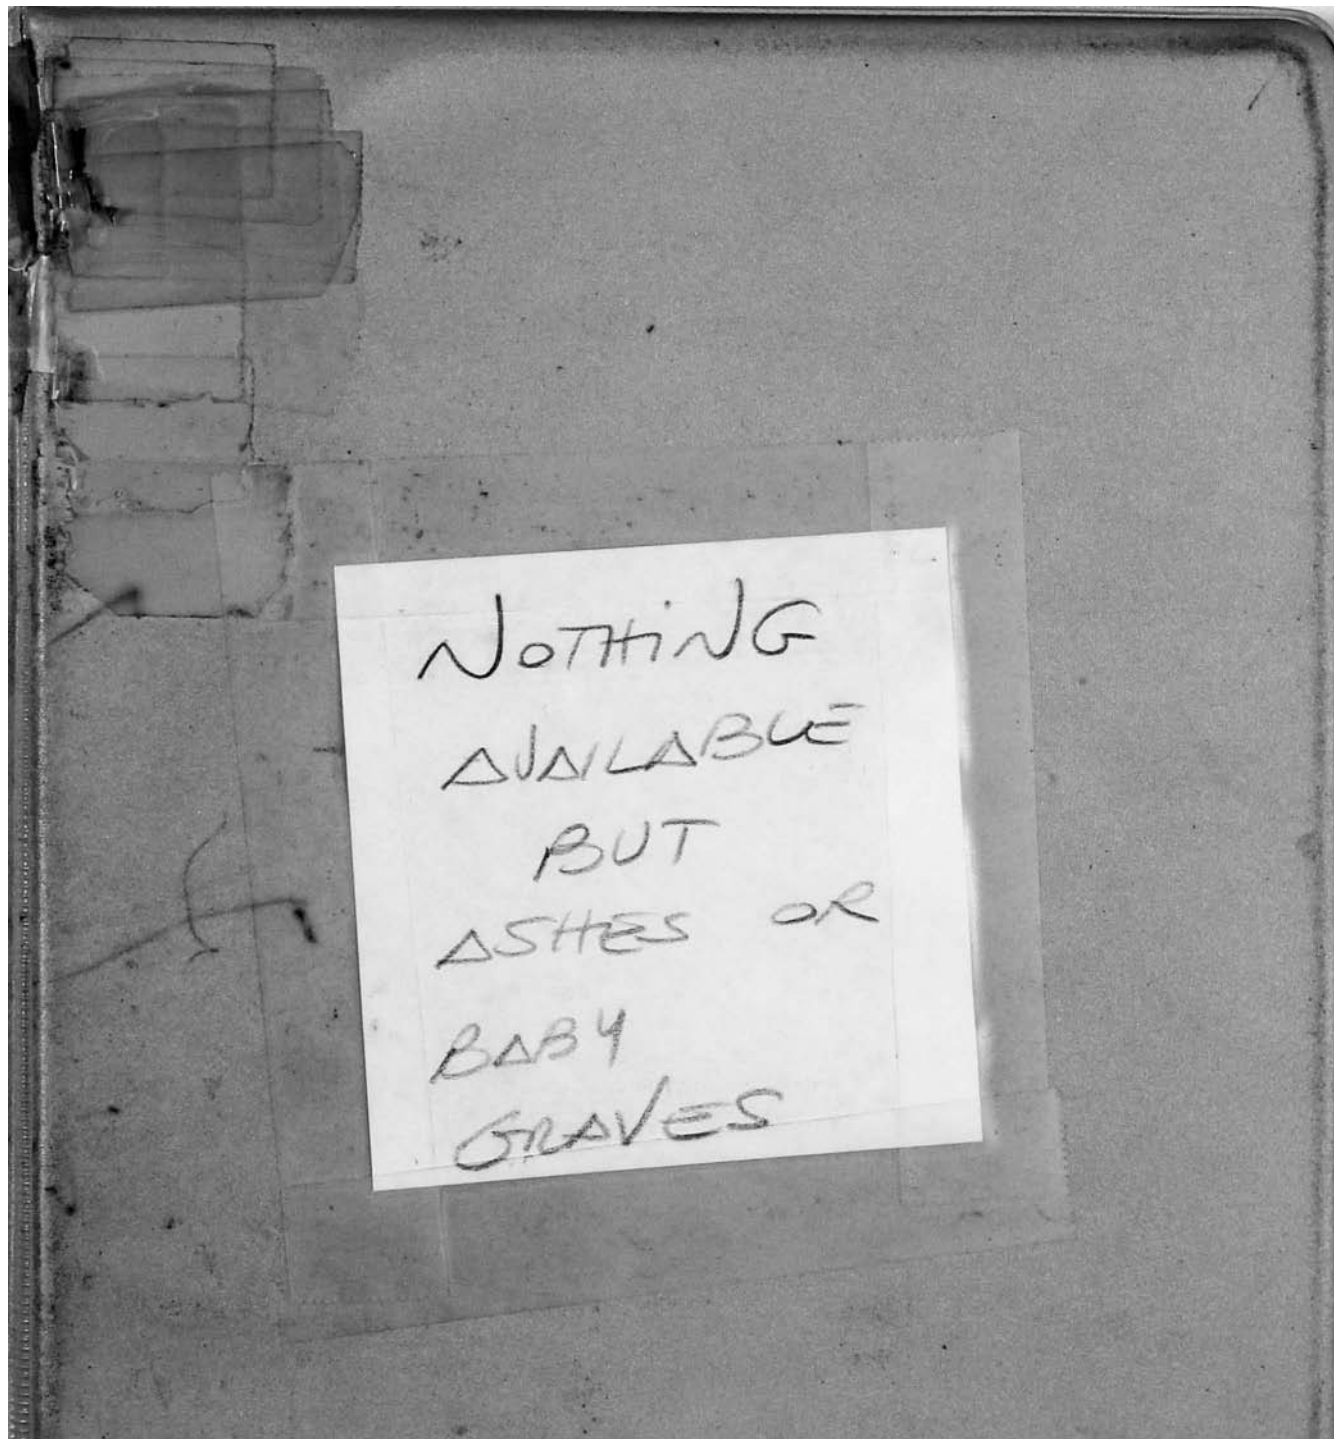 NOTHiNG
AVAILABLE
BUT
ASHES OR
BABY
GRAVES